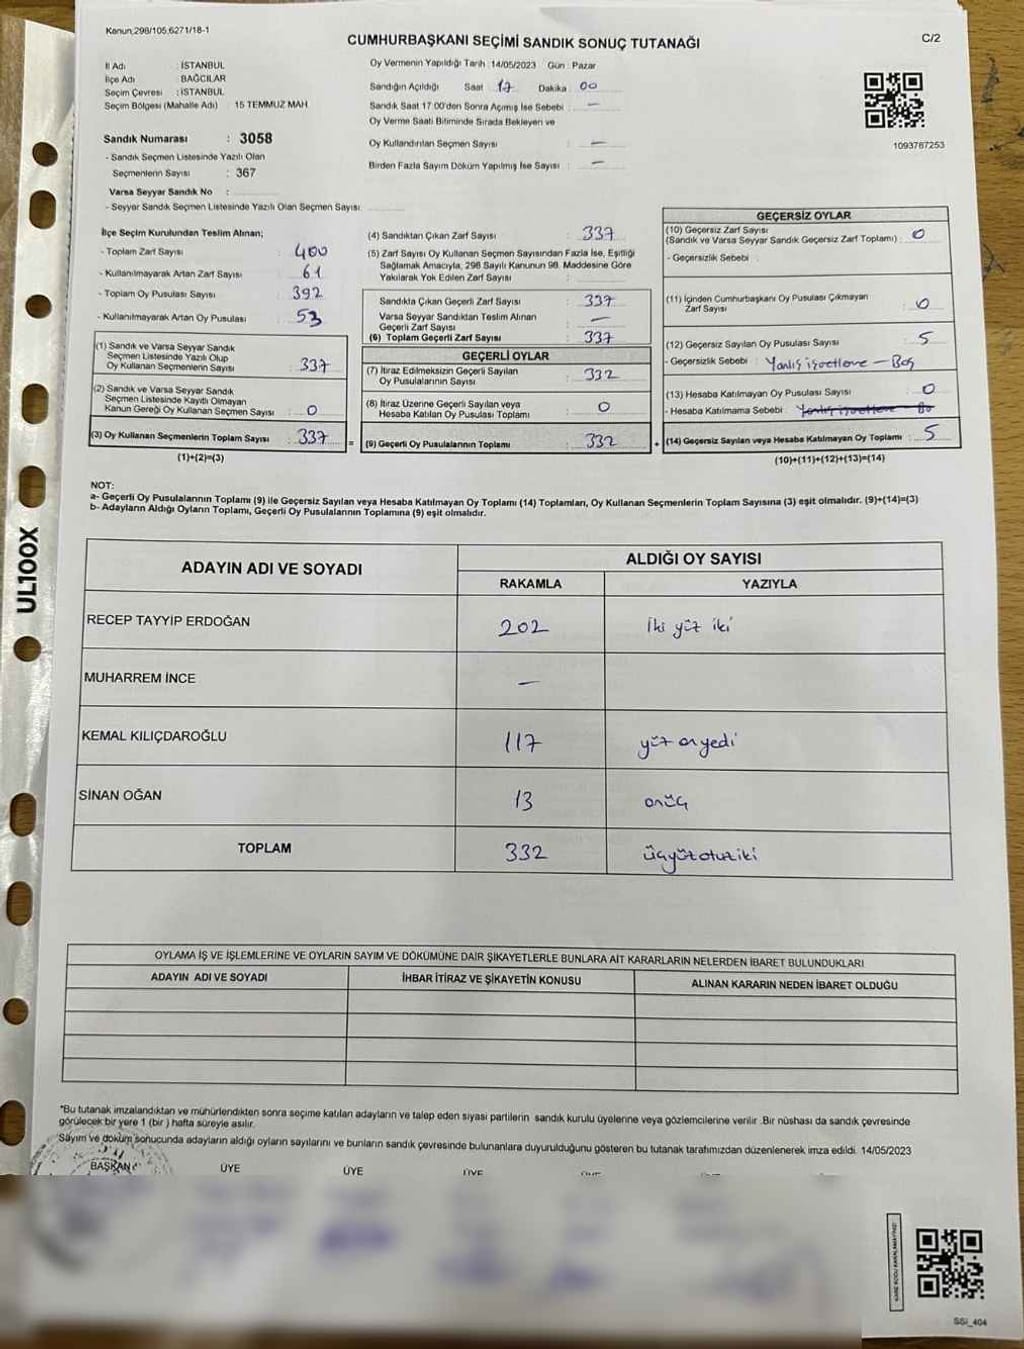 Kanun,298/105,6271/18-1
C/2
CUMHURBAŞKANI SEÇİMİ SANDIK SONUÇ TUTANAĞI
İl Adı : İSTANBUL
İlçe Adı : BAĞCILAR
Seçim Çevresi : İSTANBUL
Seçim Bölgesi (Mahalle Adı) 15 TEMMUZ MAH
Sandık Numarası : 3058
- Sandık Seçmen Listesinde Yazılı Olan
Seçmenlerin Sayısı : 367
Varsa Seyyar Sandık No :
- Seyyar Sandık Seçmen Listesinde Yazılı Olan Seçmen Sayısı:
Oy Vermenin Yapıldığı Tarih : 14/05/2023 Gün : Pazar
Sandığın Açıldığı Saat 17 Dakika 00
Sandık Saat 17.00'den Sonra Açımış İse Sebebi : —
Oy Verme Saati Bitiminde Sırada Bekleyen ve
Oy Kullandırılan Seçmen Sayısı : —
Birden Fazla Sayım Döküm Yapılmış İse Sayısı : —
1093767253
İlçe Seçim Kurulundan Teslim Alınan;
- Toplam Zarf Sayısı : 400
- Kullanılmayarak Artan Zarf Sayısı : 61
- Toplam Oy Pusulası Sayısı : 392
- Kullanılmayarak Artan Oy Pusulası : 53
(1) Sandık ve Varsa Seyyar Sandık
Seçmen Listesinde Yazılı Olup
Oy Kullanan Seçmenlerin Sayısı : 337
(2) Sandık ve Varsa Seyyar Sandık
Seçmen Listesinde Kayıtlı Olmayan
Kanun Gereği Oy Kullanan Seçmen Sayısı : 0
(3) Oy Kullanan Seçmenlerin Toplam Sayısı : 337
(1)+(2)=(3)
(4) Sandıktan Çıkan Zarf Sayısı : 337
(5) Zarf Sayısı Oy Kullanan Seçmen Sayısından Fazla İse, Eşitliği
Sağlamak Amacıyla, 298 Sayılı Kanunun 98. Maddesine Göre
Yakılarak Yok Edilen Zarf Sayısı :
Sandıkta Çıkan Geçerli Zarf Sayısı : 337
Varsa Seyyar Sandıktan Teslim Alınan
Geçerli Zarf Sayısı : —
(6) Toplam Geçerli Zarf Sayısı : 337
GEÇERLİ OYLAR
(7) İtiraz Edilmeksizin Geçerli Sayılan
Oy Pusulalarının Sayısı : 332
(8) İtiraz Üzerine Geçerli Sayılan veya
Hesaba Katılan Oy Pusulası Toplamı : 0
= (9) Geçerli Oy Pusulalarının Toplamı : 332 +
GEÇERSİZ OYLAR
(10) Geçersiz Zarf Sayısı
(Sandık ve Varsa Seyyar Sandık Geçersiz Zarf Toplamı) : 0
- Geçersizlik Sebebi :
(11) İçinden Cumhurbaşkanı Oy Pusulası Çıkmayan
Zarf Sayısı : 0
(12) Geçersiz Sayılan Oy Pusulası Sayısı : 5
- Geçersizlik Sebebi : Yanlış işaretleme – Boş
(13) Hesaba Katılmayan Oy Pusulası Sayısı : 0
- Hesaba Katılmama Sebebi : Yanlış işaretleme – Bo
(14) Geçersiz Sayılan veya Hesaba Katılmayan Oy Toplamı : 5
(10)+(11)+(12)+(13)=(14)
NOT:
a- Geçerli Oy Pusulalarının Toplamı (9) ile Geçersiz Sayılan veya Hesaba Katılmayan Oy Toplamı (14) Toplamları, Oy Kullanan Seçmenlerin Toplam Sayısına (3) eşit olmalıdır. (9)+(14)=(3)
b- Adayların Aldığı Oyların Toplamı, Geçerli Oy Pusulalarının Toplamına (9) eşit olmalıdır.
ADAYIN ADI VE SOYADI
ALDIĞI OY SAYISI
RAKAMLA YAZIYLA
RECEP TAYYİP ERDOĞAN 202 İki yüz iki
MUHARREM İNCE —
KEMAL KILIÇDAROĞLU 117 yüz onyedi
SİNAN OĞAN 13 onüç
TOPLAM 332 üçyüzotuziki
OYLAMA İŞ VE İŞLEMLERİNE VE OYLARIN SAYIM VE DÖKÜMÜNE DAİR ŞİKAYETLERLE BUNLARA AİT KARARLARIN NELERDEN İBARET BULUNDUKLARI
ADAYIN ADI VE SOYADI İHBAR İTİRAZ VE ŞİKAYETİN KONUSU ALINAN KARARIN NEDEN İBARET OLDUĞU
*Bu tutanak imzalandıktan ve mühürlendikten sonra seçime katılan adayların ve talep eden siyasi partilerin sandık kurulu üyelerine veya gözlemcilerine verilir .Bir nüshası da sandık çevresinde
görülecek bir yere 1 (bir ) hafta süreyle asılır.
Sayım ve döküm sonucunda adayların aldığı oyların sayılarını ve bunların sandık çevresinde bulunanlara duyurulduğunu gösteren bu tutanak tarafımızdan düzenlenerek imza edildi. 14/05/2023
BAŞKAN ÜYE ÜYE ÜYE
UL100X
SSI_404